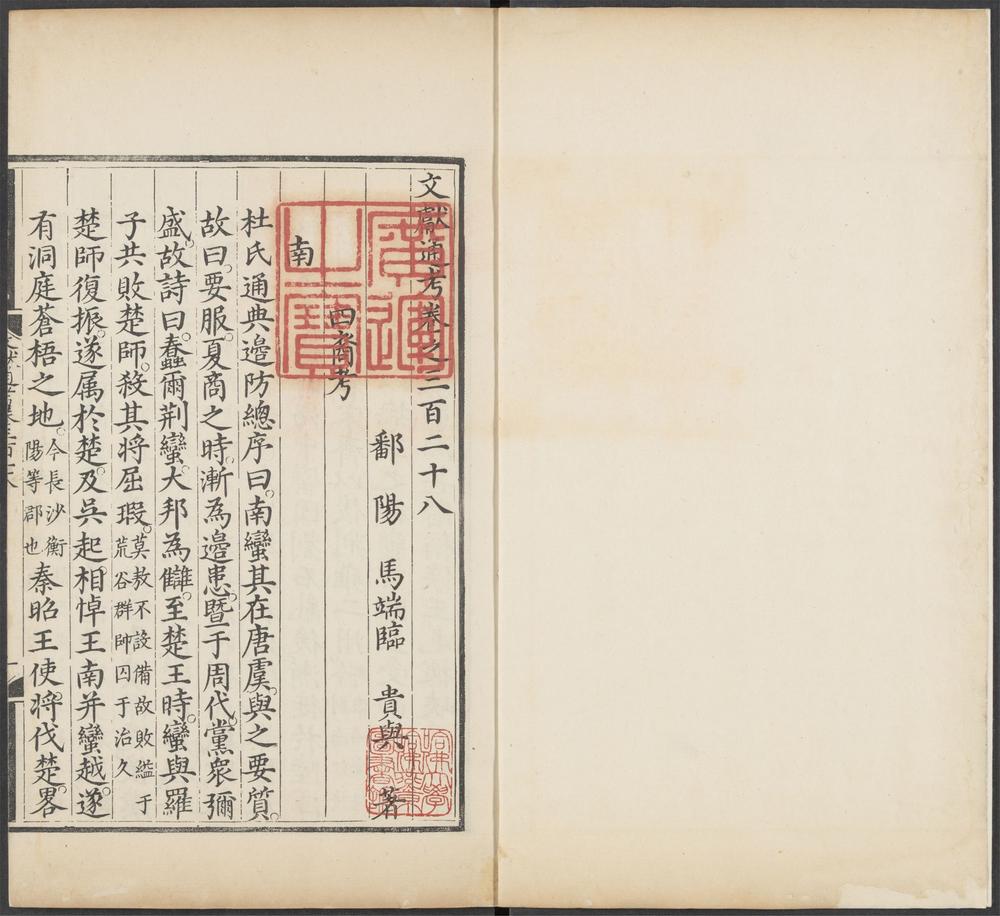 文獻通考卷之三百二十八
鄱陽 馬端臨 貴與 著
四裔考
南
杜氏通典邉防總序曰南蠻其在唐虞與之要質
故曰要服夏商之時漸為邉患暨于周代黨衆彌
盛故詩曰蠢爾荆蠻大邦為讎至楚王時蠻與羅
子共敗楚師殺其将屈瑕莫敖不設備故敗縊于荒谷群帥囚于治久
楚師復振遂属於楚及吳起相悼王南并蠻越遂
有洞庭蒼梧之地今長沙衡陽等郡也秦昭王使将伐楚畧
廣運之寶